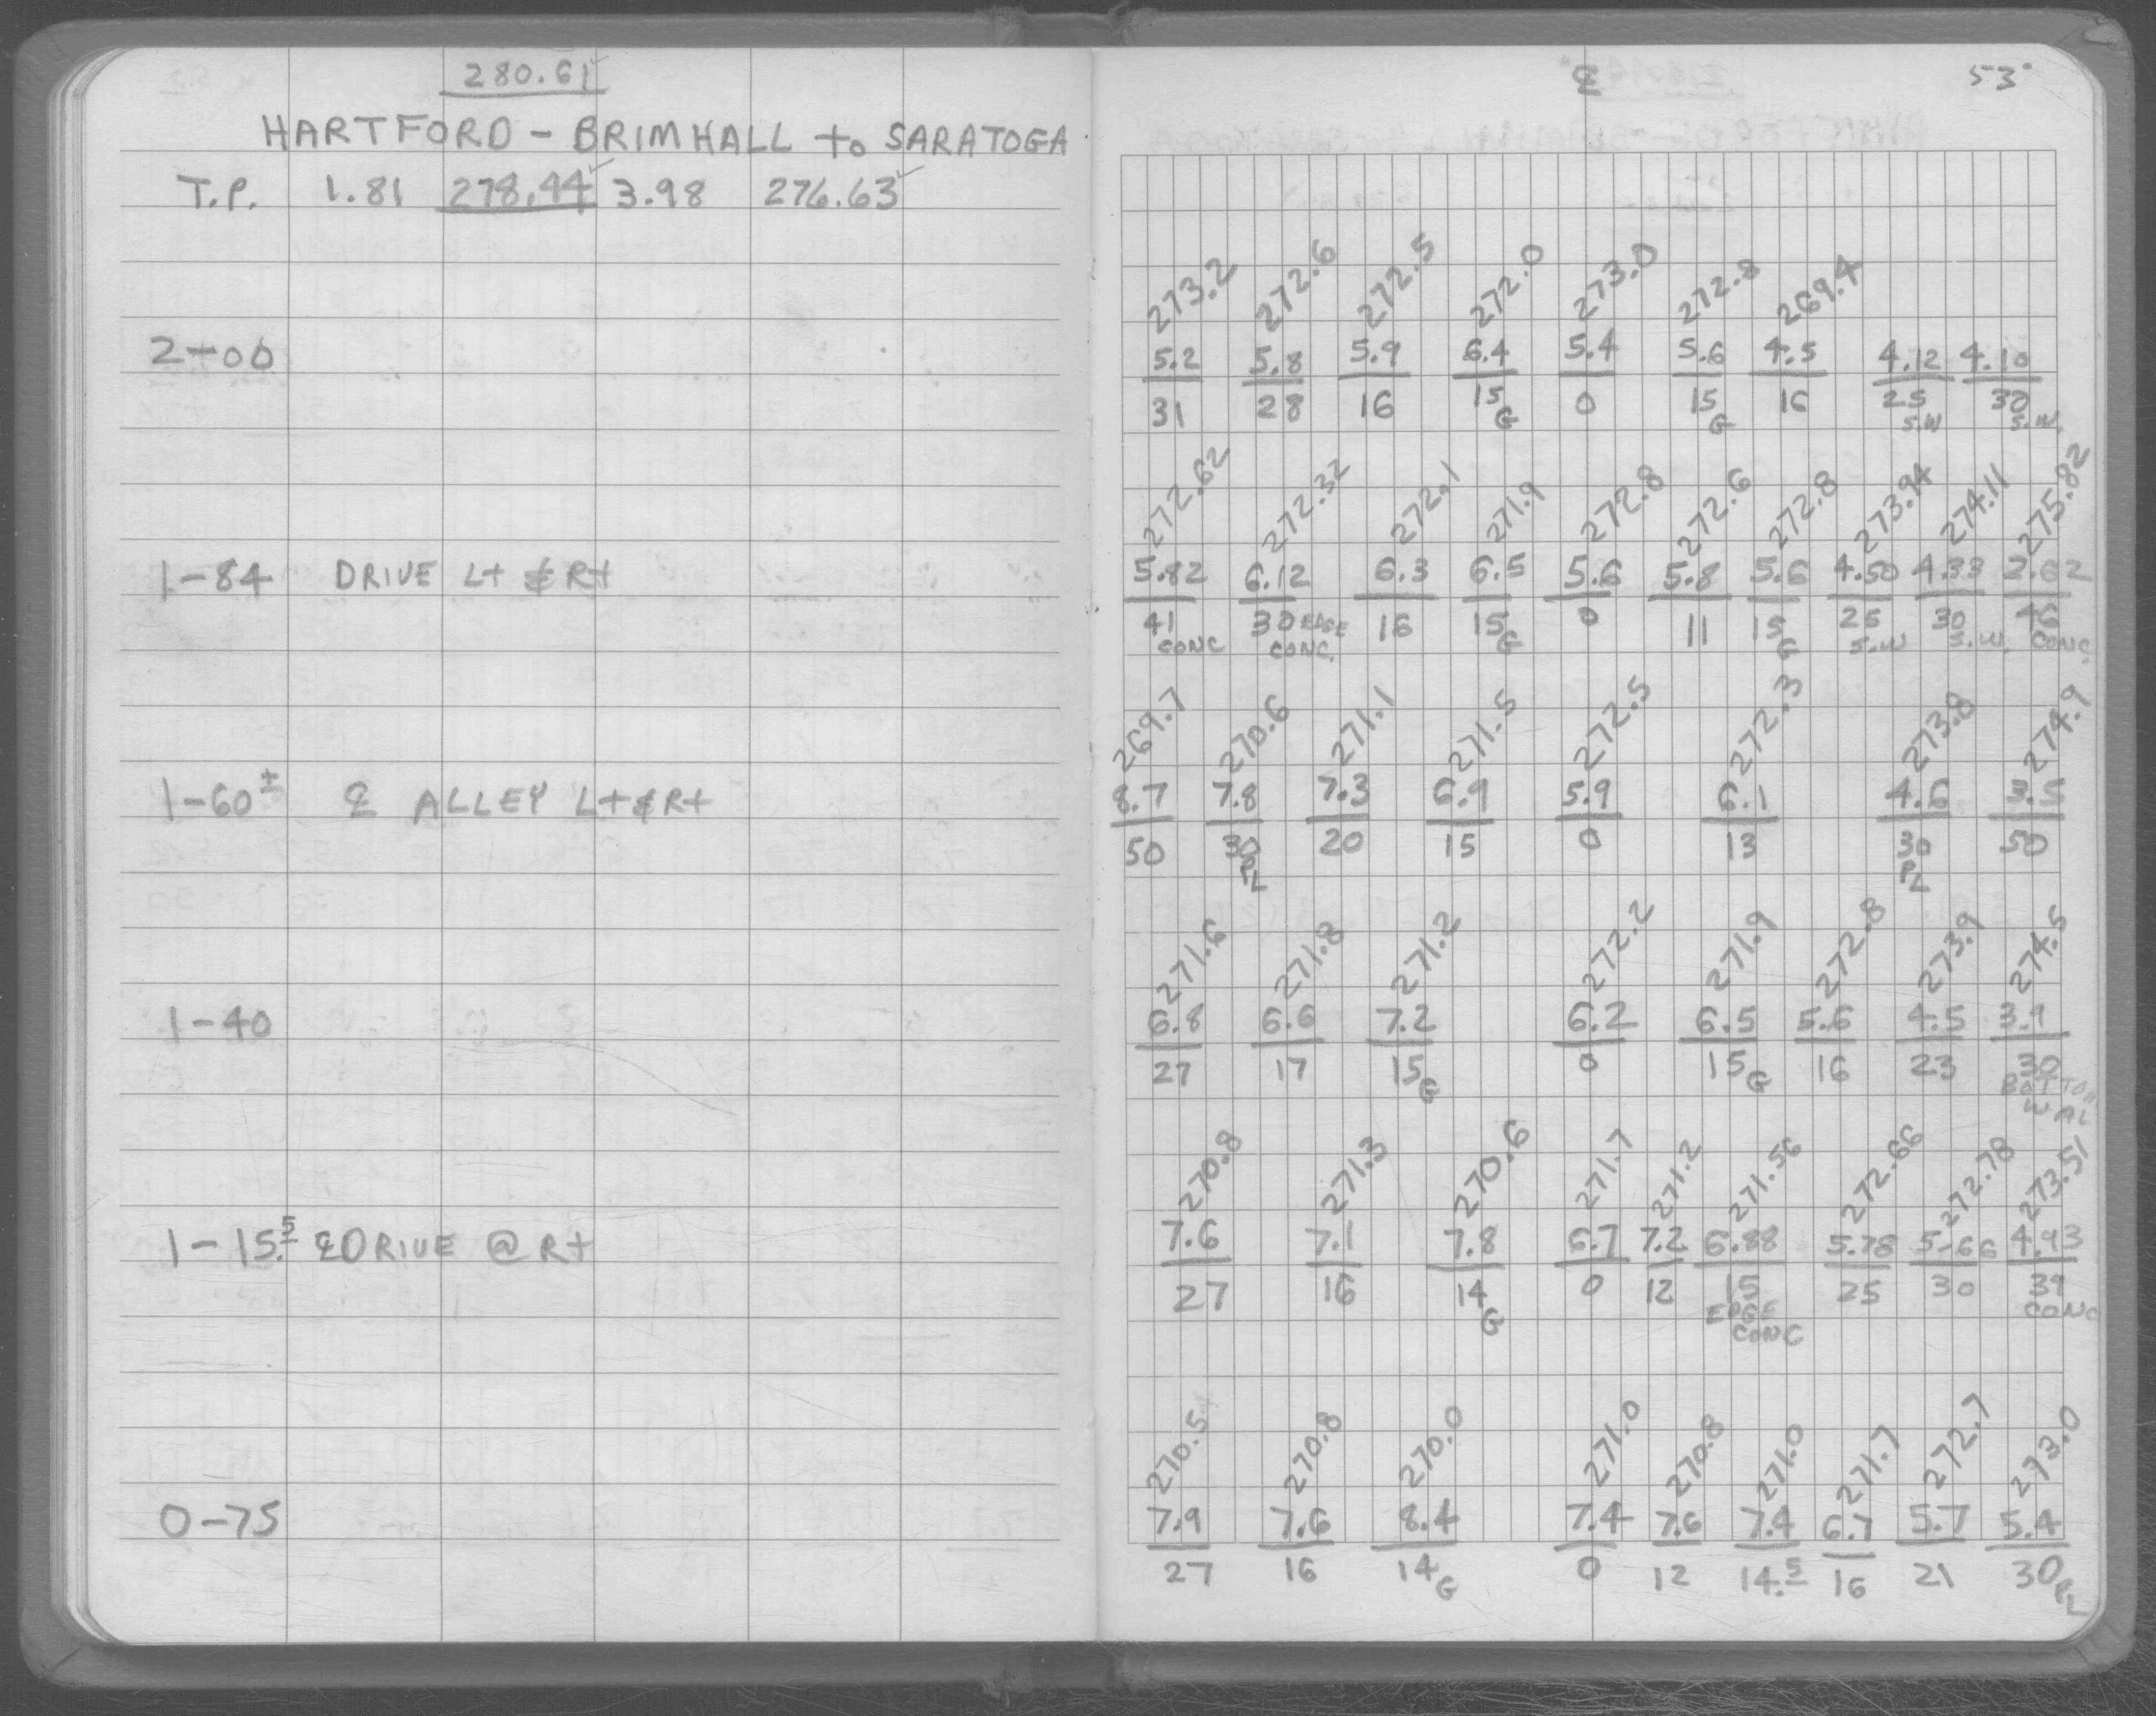 280.61
HARTFORD - BRIMHALL to SARATOGA
T.P. 1.81 278.44 3.98 276.63
2-00
1-84 DRIVE Lt & Rt
1-60± ℄ ALLEY Lt & Rt
1-40
1-15.5 ℄ DRIVE @ Rt
0-75
℄ 53
273.2 272.6 272.5 272.0 273.0 272.8 269.4
5.2 5.8 5.9 6.4 5.4 5.6 4.5 4.12 4.10
31 28 16 15 0 15 16 25 30
G G S.W S.W.
272.62 272.32 272.1 271.9 272.8 272.6 272.8 273.94 274.11 275.82
5.82 6.12 6.3 6.5 5.6 5.8 5.6 4.50 4.33 2.62
41 30 EDGE 16 15 0 11 15 25 30 46
CONC CONC. G G S.W S.W. CONC.
269.7 270.6 271.1 271.5 272.5 272.3 273.8 274.9
8.7 7.8 7.3 6.9 5.9 6.1 4.6 3.5
50 30 20 15 0 13 30 50
PL PL
271.6 271.8 271.2 272.2 271.9 272.8 273.9 274.5
6.8 6.6 7.2 6.2 6.5 5.6 4.5 3.9
27 17 15 0 15 16 23 30
G G BOTTOM
WAL
270.8 271.3 270.6 271.7 271.2 271.56 272.66 272.78 273.51
7.6 7.1 7.8 6.7 7.2 6.88 5.78 5.66 4.93
27 16 14 0 12 15 25 30 39
G EDGE CONC
CONC
270.5 270.8 270.0 271.0 270.8 271.0 271.7 272.7 273.0
7.9 7.6 8.4 7.4 7.6 7.4 6.7 5.7 5.4
27 16 14 0 12 14.5 16 21 30
G PL